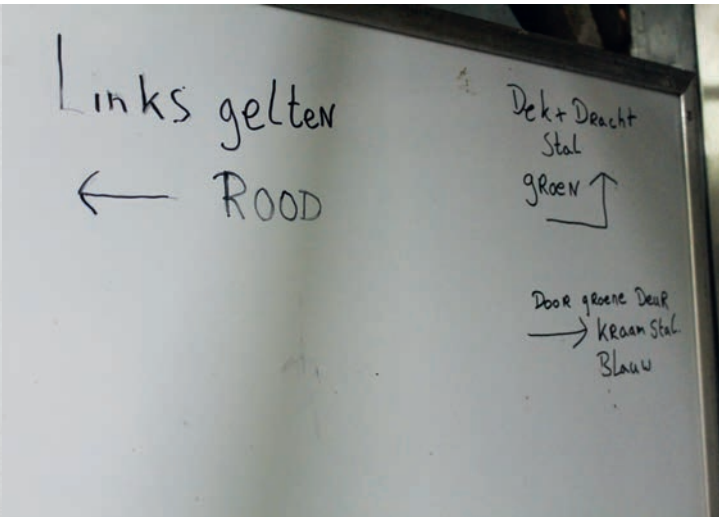 Links gelten
← ROOD
Dek + Dracht
Stal
groen
Door groene Deur
→ Kraam Stal.
Blauw